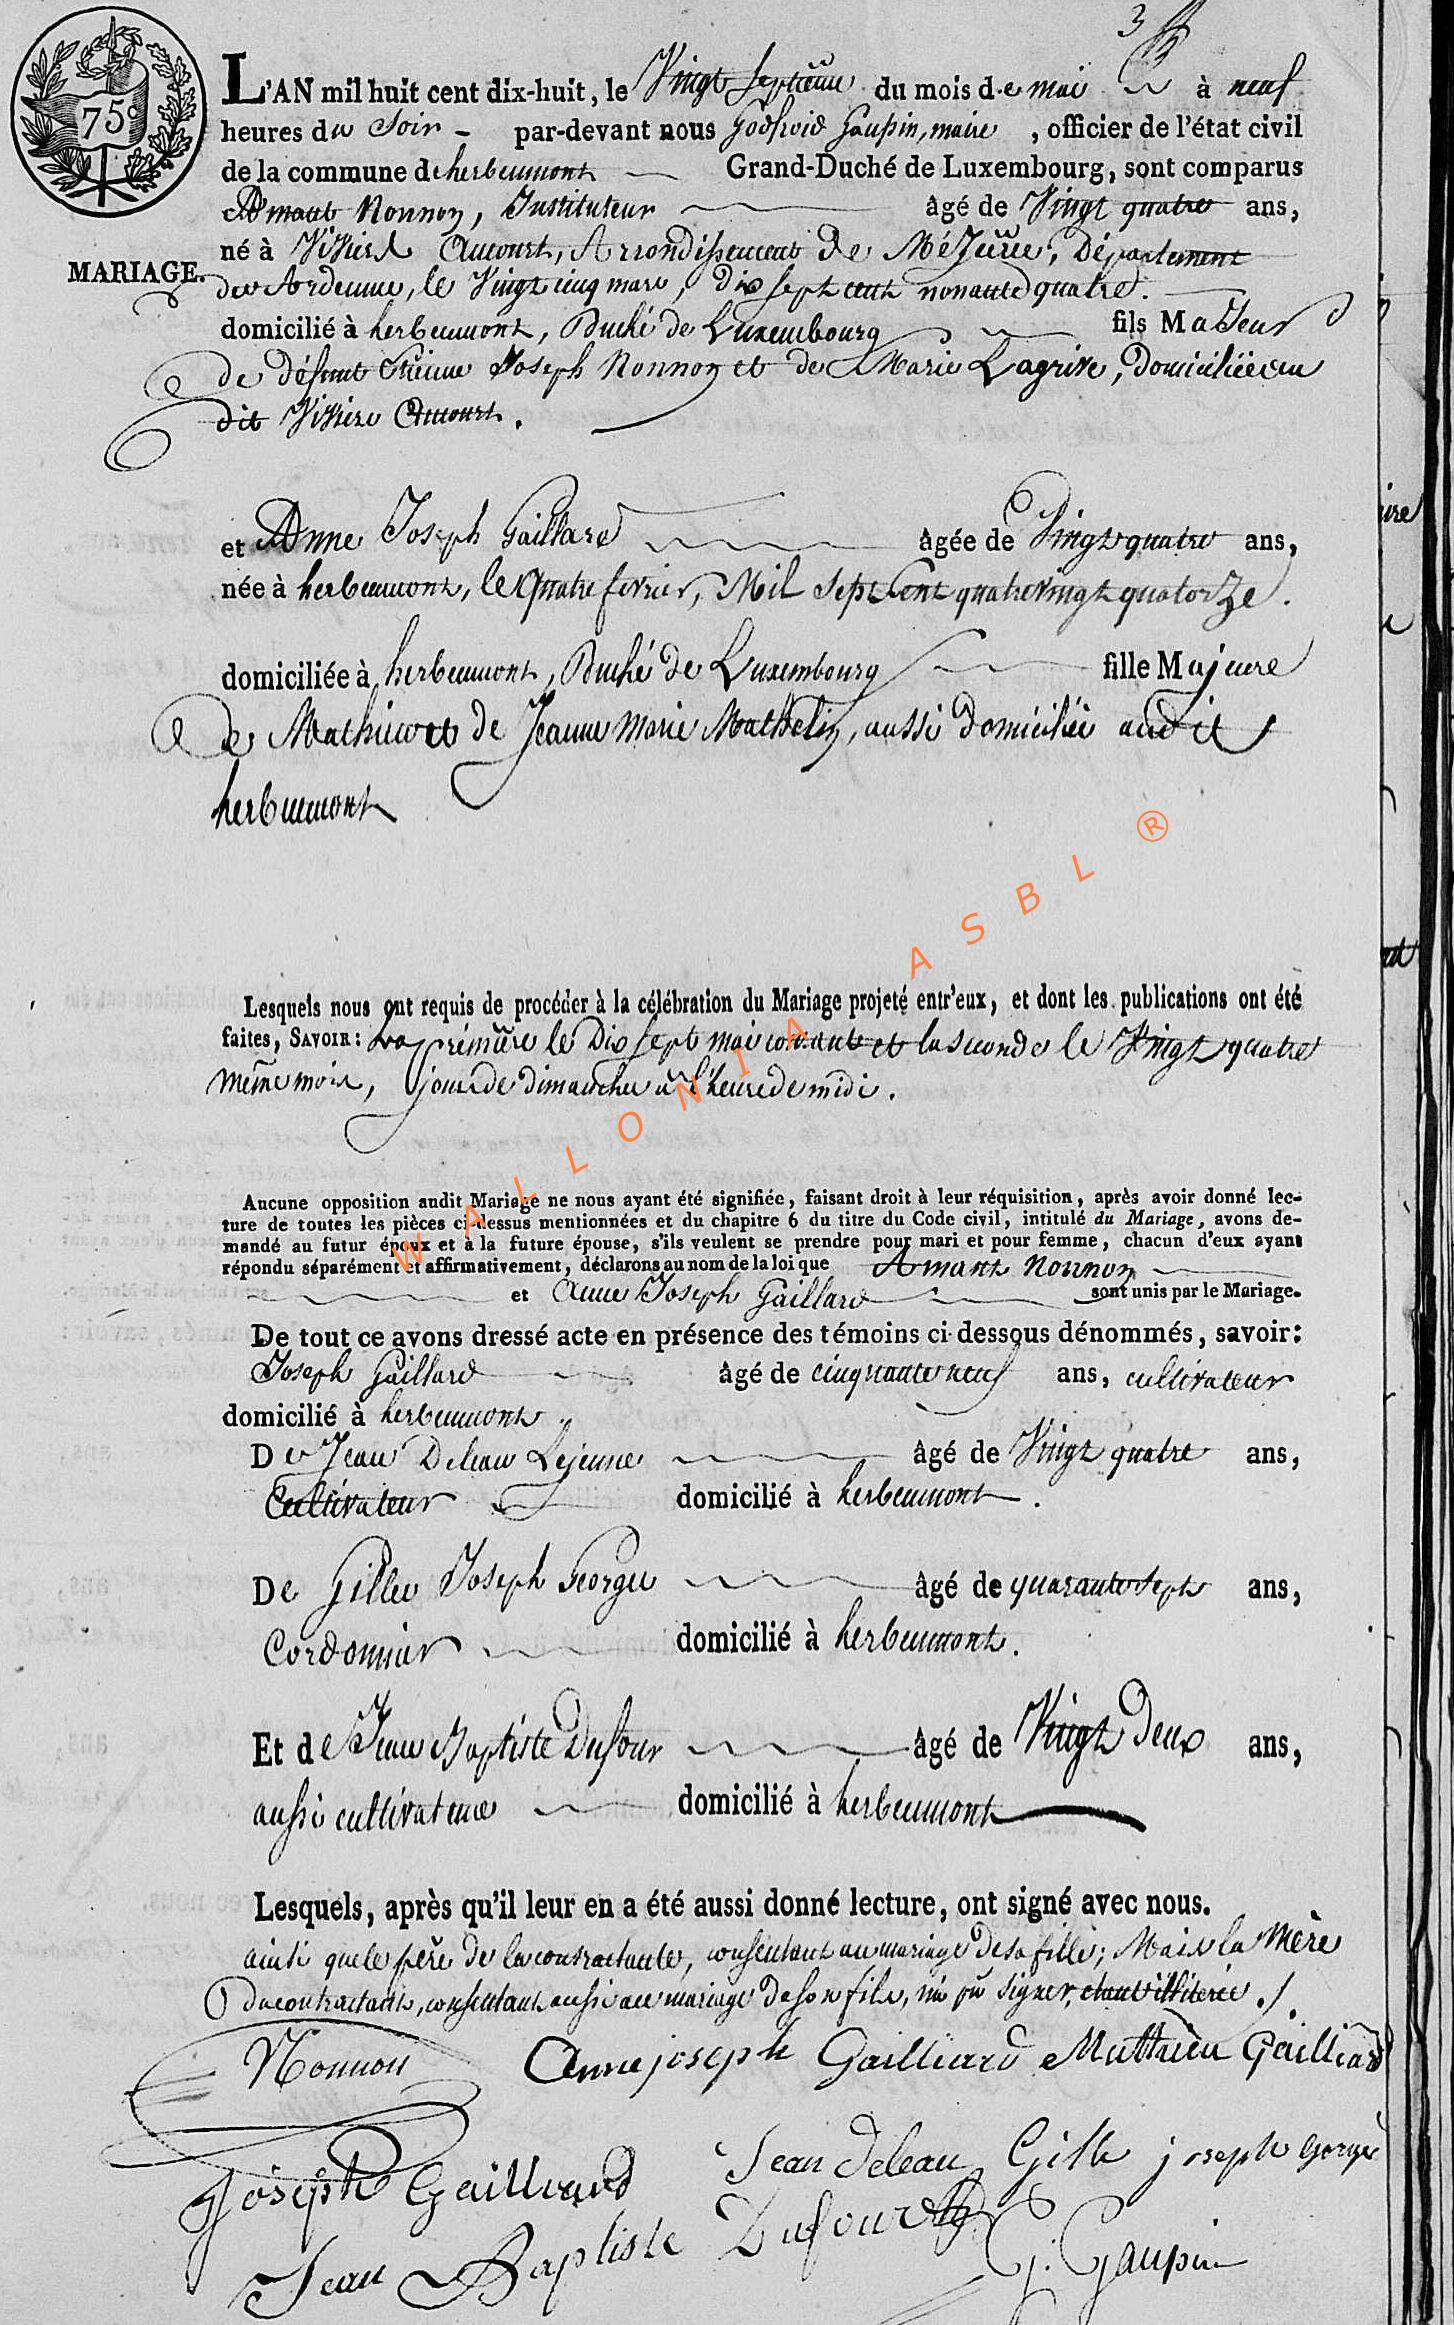 3
75c
L'AN mil huit cent dix-huit, le Vingt septieme du mois de mai à neuf
heures du Soir - par-devant nous Godfroid Gaupin, maire, officier de l'état civil
de la commune de herbeumont Grand-Duché de Luxembourg, sont comparus
Amant Nonnon, Instituteur âgé de Vingt quatre ans,
né à Viviers Aucourt, Arrondissement de Mézière, Département
MARIAGE.
des Ardenne, le Vingt cinq mars, dix sept cent nonante quatre.
domicilié à herbeumont, Duché de Luxembourg fils Majeur
de défunt Etienne Joseph Nonnon et de Marie Lagrive, domiciliée au
dit Viviere Aucourt.
et Anne Joseph Gaillard âgée de Vingt quatre ans,
née à herbeumont, le Quatre fevrier, Mil Sept Cent quatre vingt quatorze.
domiciliée à herbeumont, Duché de Luxembourg fille Majeure
de Mathieu et de Jeanne Marie Mathelin, aussi domiciliés audit
herbeumont
Lesquels nous ont requis de procéder à la célébration du Mariage projeté entr'eux, et dont les publications ont été
faites, SAVOIR: La premiere le Dix sept mai courant et la seconde le Vingt quatre
même mois, jour de dimanche à l'heure de midi.
Aucune opposition audit Mariage ne nous ayant été signifiée, faisant droit à leur réquisition, après avoir donné lec-
ture de toutes les pièces ci-dessus mentionnées et du chapitre 6 du titre du Code civil, intitulé du Mariage, avons de-
mandé au futur époux et à la future épouse, s'ils veulent se prendre pour mari et pour femme, chacun d'eux ayant
répondu séparément et affirmativement, déclarons au nom de la loi que Amant Nonnon
et Anne Joseph Gaillard sont unis par le Mariage.
De tout ce avons dressé acte en présence des témoins ci-dessous dénommés, savoir:
Joseph Gaillard âgé de cinquante neuf ans, cultivateur
domicilié à herbeumont.
De Jean Deleau Lejeune âgé de Vingt quatre ans,
Cultivateur domicilié à herbeumont.
De Gilles Joseph Georges âgé de quarante sept ans,
Cordonnier domicilié à herbeumont.
Et de Jean Baptiste Dufour âgé de Vingt Deux ans,
aussi cultivateur domicilié à herbeumont
Lesquels, après qu'il leur en a été aussi donné lecture, ont signé avec nous.
ainsi que le père de la contractante, consentant au mariage de sa fille; Mais la Mère
du contractant, consentant aussi au mariage de son fils, n'a pû signer, étant illiterée ./.
Nonnon Anne joseph Gailliard Mathieu Gailliard
Joseph Gailliard Jean deleau Gille joseph Gorge
Jean Baptiste Dufour G. Gaupin
WALLONIA ASBL ®